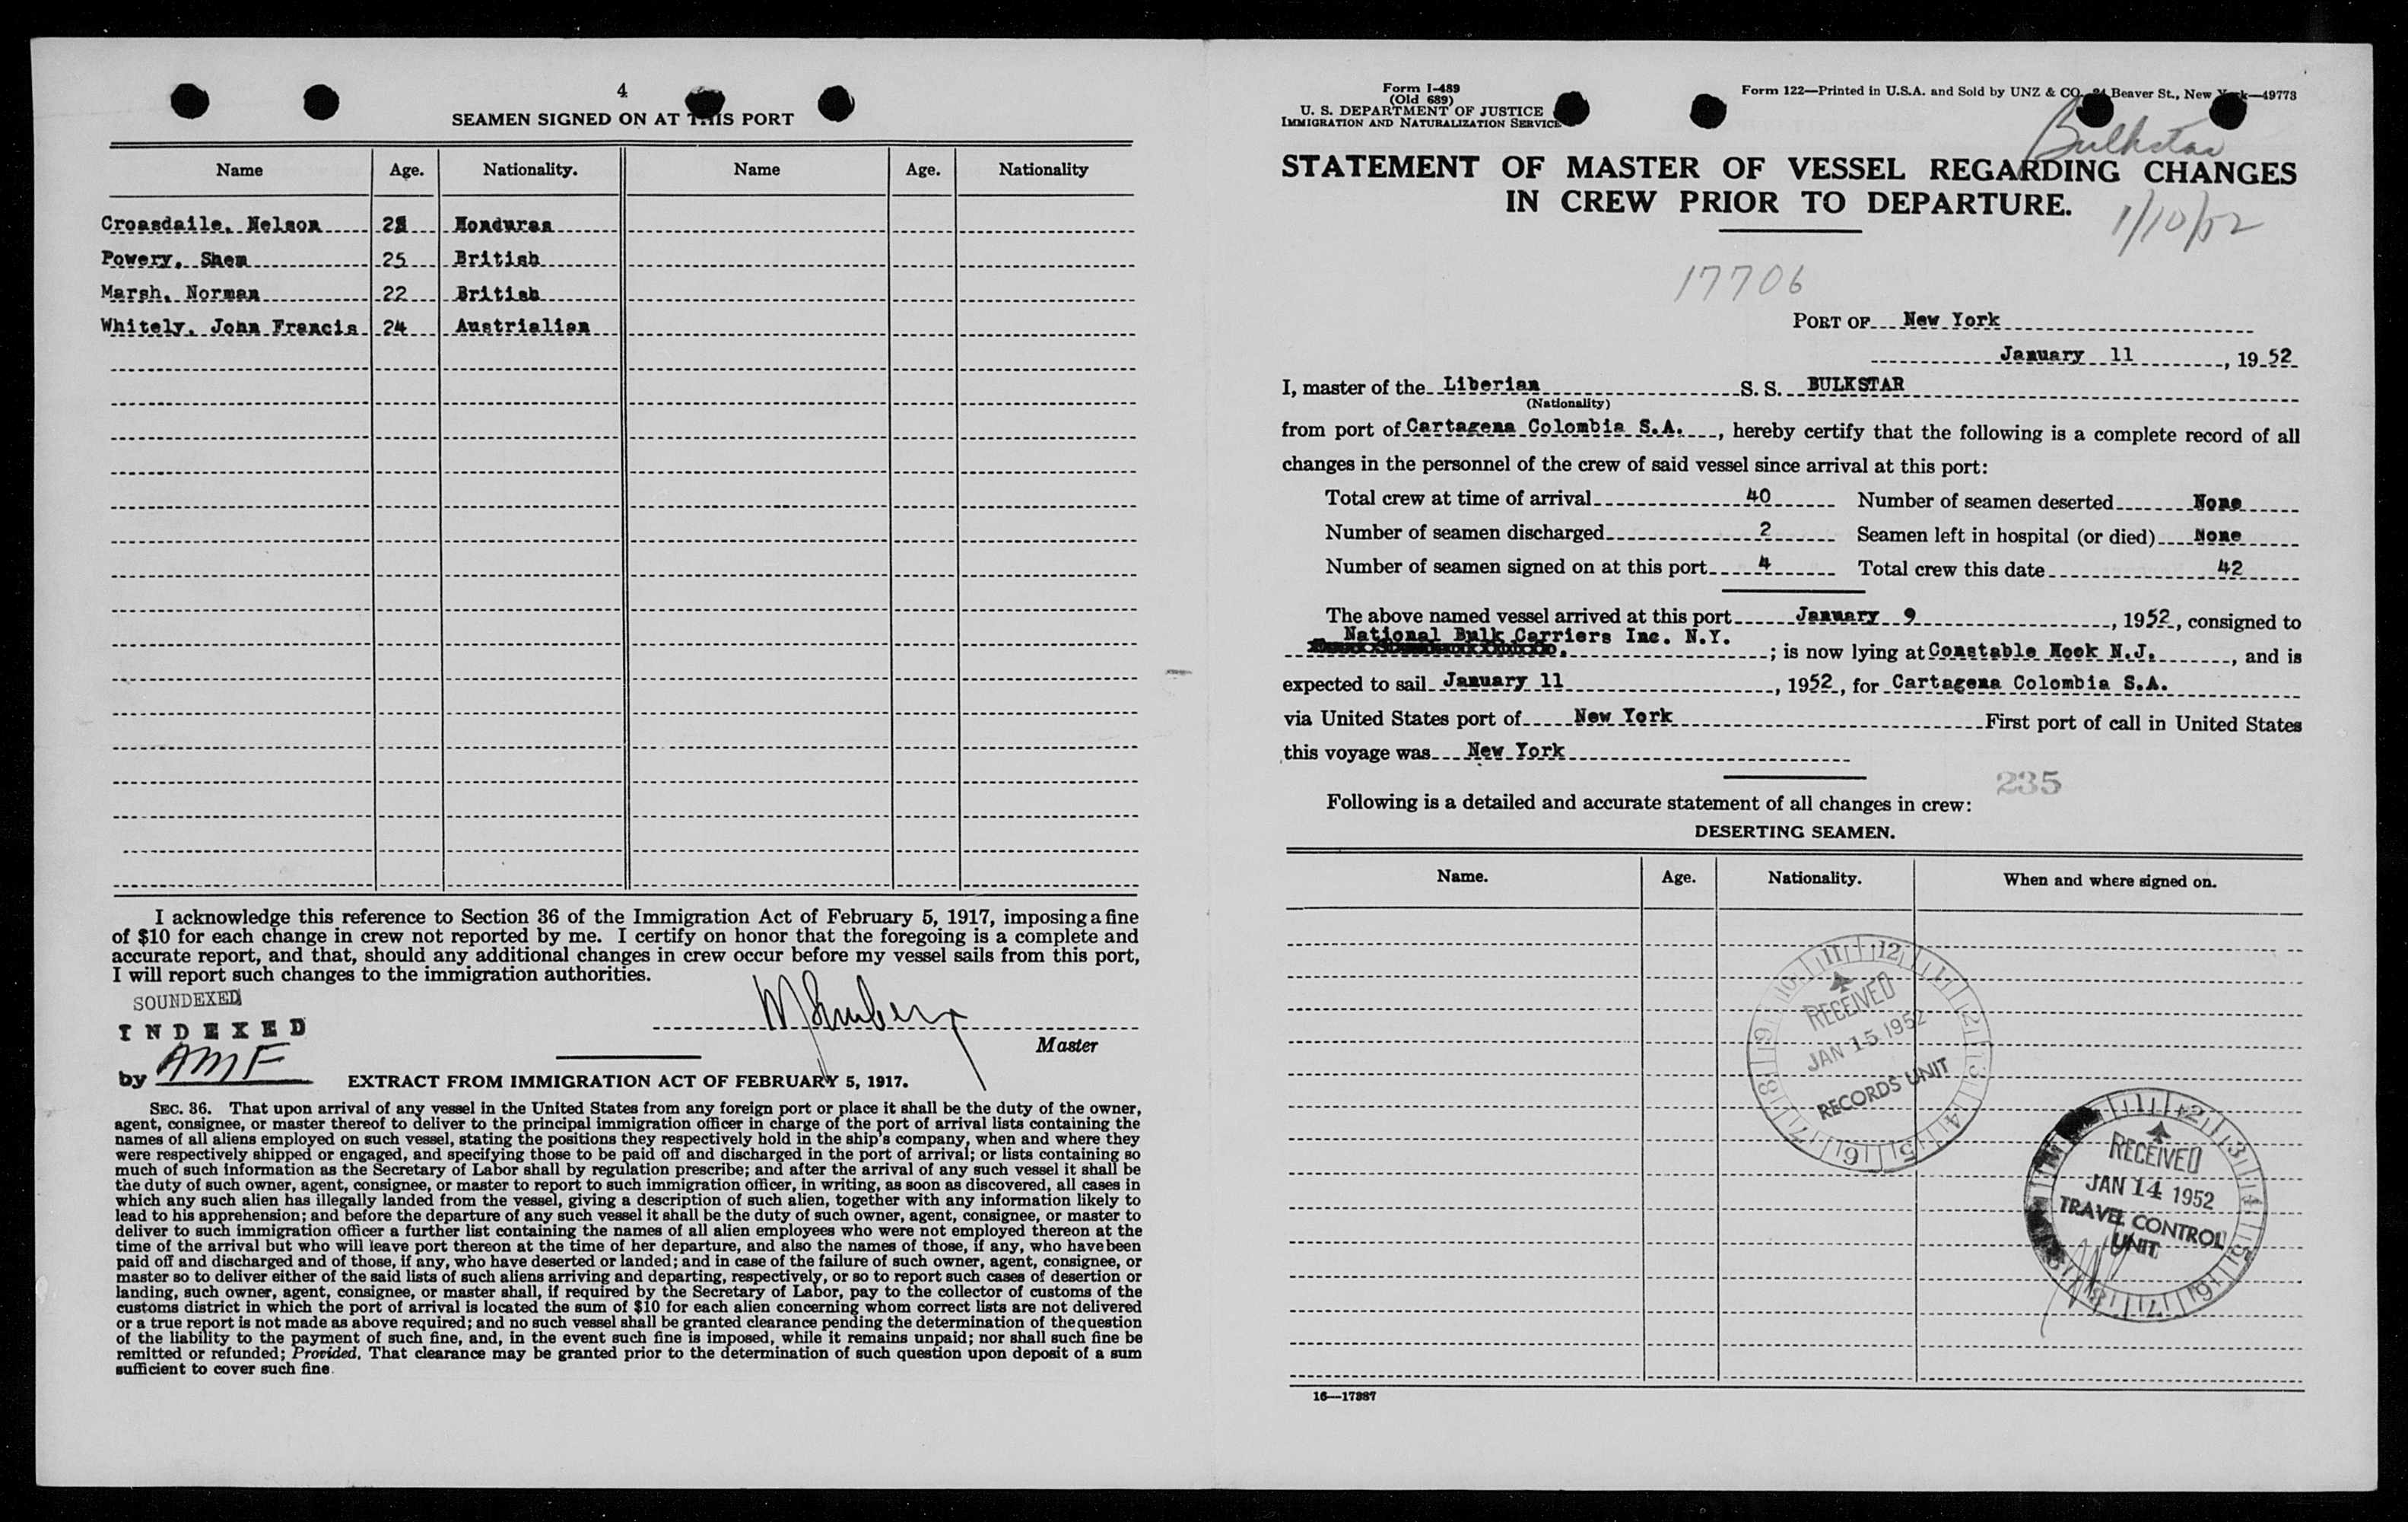 4
SEAMEN SIGNED ON AT THIS PORT
Name Age. Nationality. Name Age. Nationality
Croasdaile, Nelson Honduras
Powery, Shem 25 British
Marsh, Norman 22 British
Whitely, John Francis 24 Austrialian
I acknowledge this reference to Section 36 of the Immigration Act of February 5, 1917, imposing a fine
of $10 for each change in crew not reported by me. I certify on honor that the foregoing is a complete and
accurate report, and that, should any additional changes in crew occur before my vessel sails from this port,
I will report such changes to the immigration authorities.
SOUNDEXED
INDEXED
by AMF
Master
EXTRACT FROM IMMIGRATION ACT OF FEBRUARY 5, 1917.
SEC. 36. That upon arrival of any vessel in the United States from any foreign port or place it shall be the duty of the owner,
agent, consignee, or master thereof to deliver to the principal immigration officer in charge of the port of arrival lists containing the
names of all aliens employed on such vessel, stating the positions they respectively hold in the ship's company, when and where they
were respectively shipped or engaged, and specifying those to be paid off and discharged in the port of arrival; or lists containing so
much of such information as the Secretary of Labor shall by regulation prescribe; and after the arrival of any such vessel it shall be
the duty of such owner, agent, consignee, or master to report to such immigration officer, in writing, as soon as discovered, all cases in
which any such alien has illegally landed from the vessel, giving a description of such alien, together with any information likely to
lead to his apprehension; and before the departure of any such vessel it shall be the duty of such owner, agent, consignee, or master to
deliver to such immigration officer a further list containing the names of all alien employees who were not employed thereon at the
time of the arrival but who will leave port thereon at the time of her departure, and also the names of those, if any, who have been
paid off and discharged and of those, if any, who have deserted or landed; and in case of the failure of such owner, agent, consignee, or
master so to deliver either of the said lists of such aliens arriving and departing, respectively, or so to report such cases of desertion or
landing, such owner, agent, consignee, or master shall, if required by the Secretary of Labor, pay to the collector of customs of the
customs district in which the port of arrival is located the sum of $10 for each alien concerning whom correct lists are not delivered
or a true report is not made as above required; and no such vessel shall be granted clearance pending the determination of the question
of the liability to the payment of such fine, and, in the event such fine is imposed, while it remains unpaid; nor shall such fine be
remitted or refunded; Provided, That clearance may be granted prior to the determination of such question upon deposit of a sum
sufficient to cover such fine.
Form I-489
(Old 689)
U. S. DEPARTMENT OF JUSTICE
IMMIGRATION AND NATURALIZATION SERVICE
Form 122—Printed in U.S.A. and Sold by UNZ & CO. Beaver St., New York—49773
Bulkstar
STATEMENT OF MASTER OF VESSEL REGARDING CHANGES
IN CREW PRIOR TO DEPARTURE.
1/10/52
17706
PORT OF New York
January 11, 1952
I, master of the Liberian S. S. BULKSTAR
(Nationality)
from port of Cartagena Colombia S.A., hereby certify that the following is a complete record of all
changes in the personnel of the crew of said vessel since arrival at this port:
Total crew at time of arrival 40 Number of seamen deserted None
Number of seamen discharged 2 Seamen left in hospital (or died) None
Number of seamen signed on at this port 4 Total crew this date 42
The above named vessel arrived at this port January 9, 1952, consigned to
National Bulk Carriers Inc. N.Y.
; is now lying at Constable Hook N.J., and is
expected to sail January 11, 1952, for Cartagena Colombia S.A.
via United States port of New York First port of call in United States
this voyage was New York
235
Following is a detailed and accurate statement of all changes in crew:
DESERTING SEAMEN.
Name. Age. Nationality. When and where signed on.
RECEIVED
JAN 15 1952
RECORDS UNIT
RECEIVED
JAN 14 1952
TRAVEL CONTROL
UNIT
16—17387